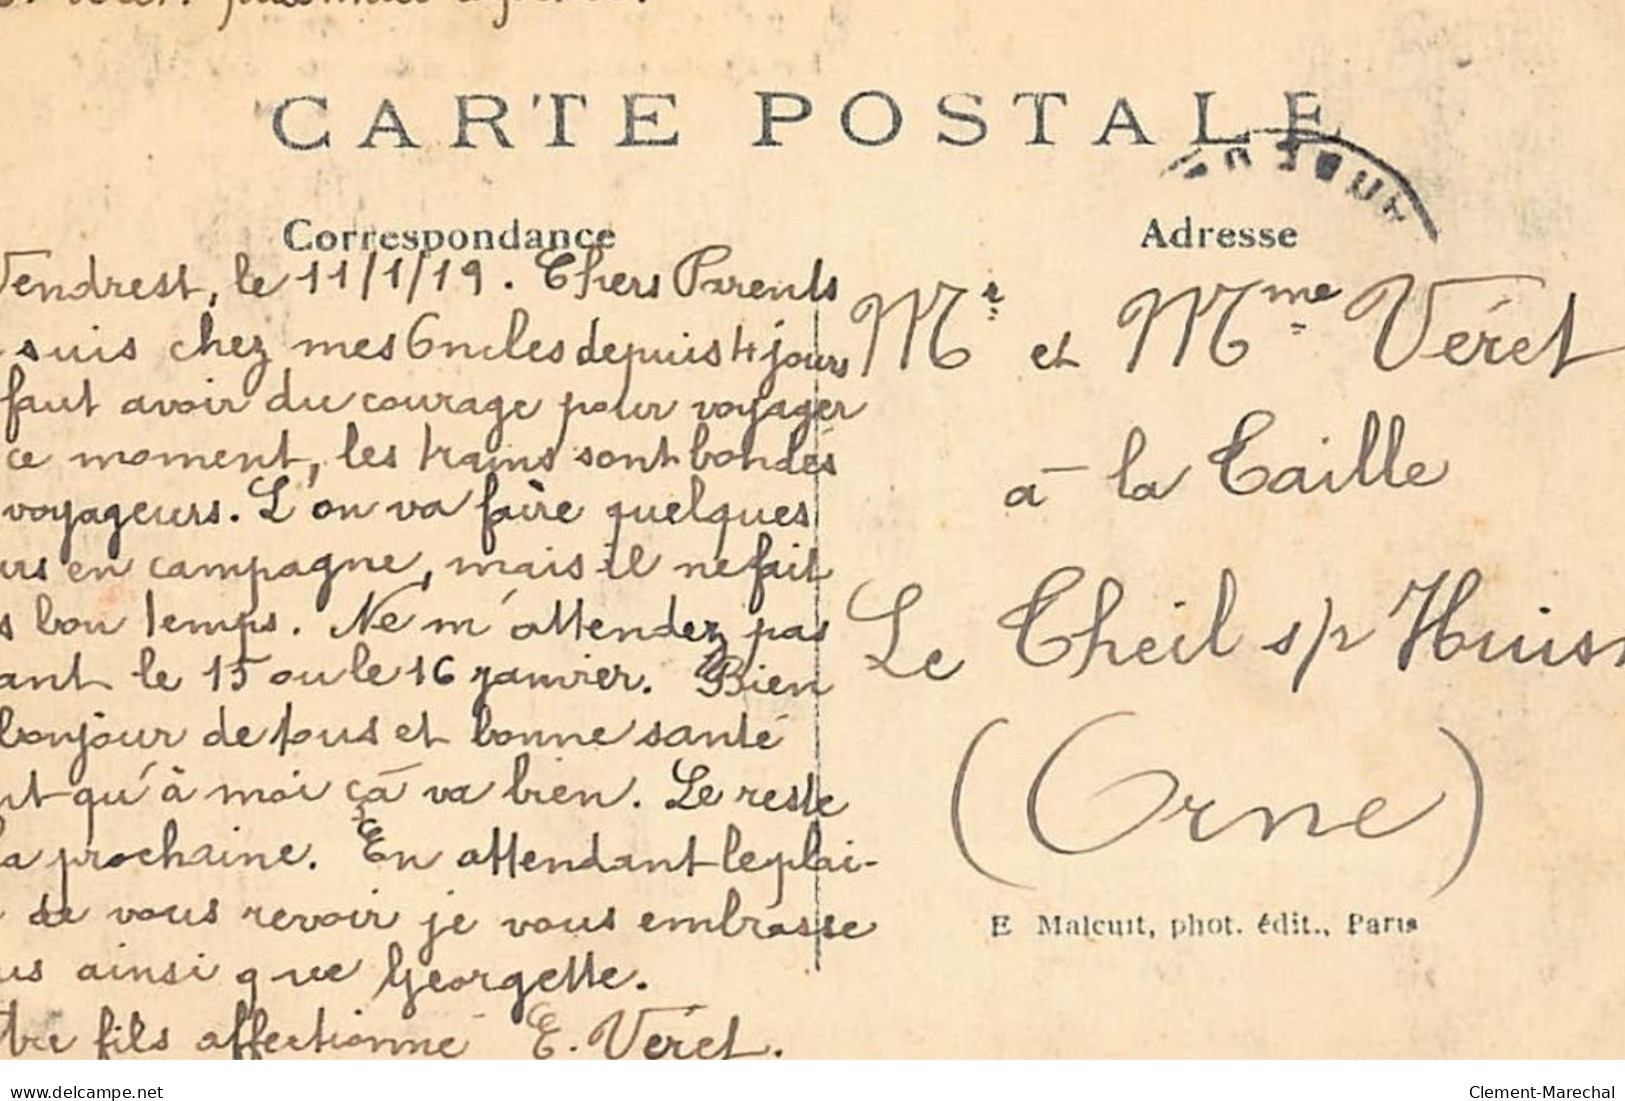 CARTE POSTALE
Correspondance
Adresse
Vendrest, le 11/1/19. Chers Parents
suis chez mes Oncles depuis 4 jours
faut avoir du courage pour voyager
ce moment, les trains sont bondés
voyageurs. L'on va faire quelques
urs en campagne, mais il ne fait
s bon temps. Ne m'attendez pas
ant le 15 ou le 16 janvier. Bien
bonjour de tous et bonne santé
nt qu'à moi ça va bien. Le reste
la prochaine. En attendant le plai-
de vous revoir je vous embrasse
us ainsi que Georgette.
tre fils affectionné E. Véret.
Mr et Mme Véret
à la Taille
Le Theil s/r Huisn
(Orne)
E Malcuit, phot. édit., Paris
delcampe.net
Clement-Marechal